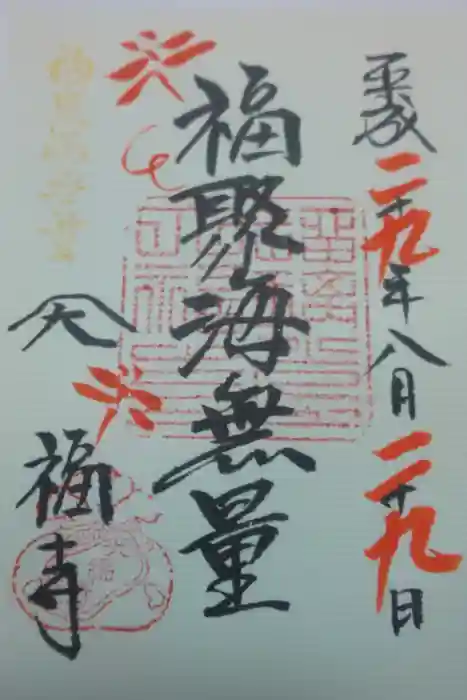 平成二十九年八月二十九日
福聚海無量
大福寺